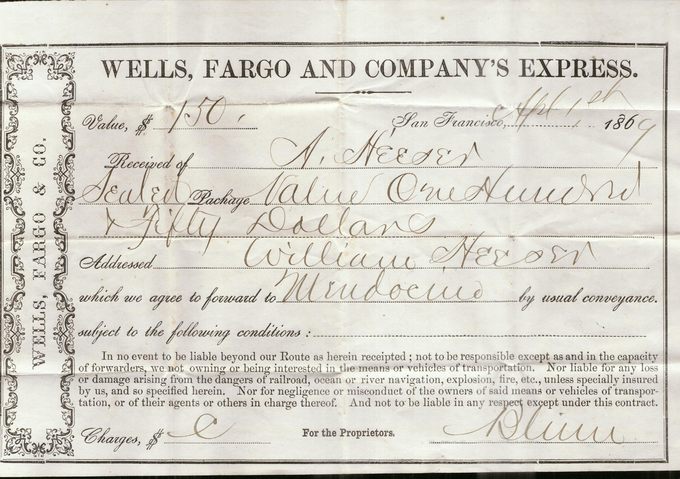 WELLS, FARGO AND COMPANY'S EXPRESS.
WELLS, FARGO & CO.
Value, $ 150. San Francisco, 1st 1869
Received of A. Heeser
Sealed Package Value One Hundred
& Fifty Dollars
Addressed William Heeser
which we agree to forward to Mendocino by usual conveyance.
subject to the following conditions :
In no event to be liable beyond our Route as herein receipted ; not to be responsible except as and in the capacity
of forwarders, we not owning or being interested in the means or vehicles of transportation. Nor liable for any loss
or damage arising from the dangers of railroad, ocean or river navigation, explosion, fire, etc., unless specially insured
by us, and so specified herein. Nor for negligence or misconduct of the owners of said means or vehicles of transpor-
tation, or of their agents or others in charge thereof. And not to be liable in any respect except under this contract.
Charges, $ C For the Proprietors.